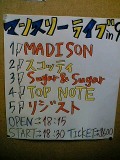 マンスリーライブ in
1 MADISON
2 スコッティ
3 Sugar & Sugar
4 TOP NOTE
5 リジスト
OPEN 18:15
START 18:30 TICKET